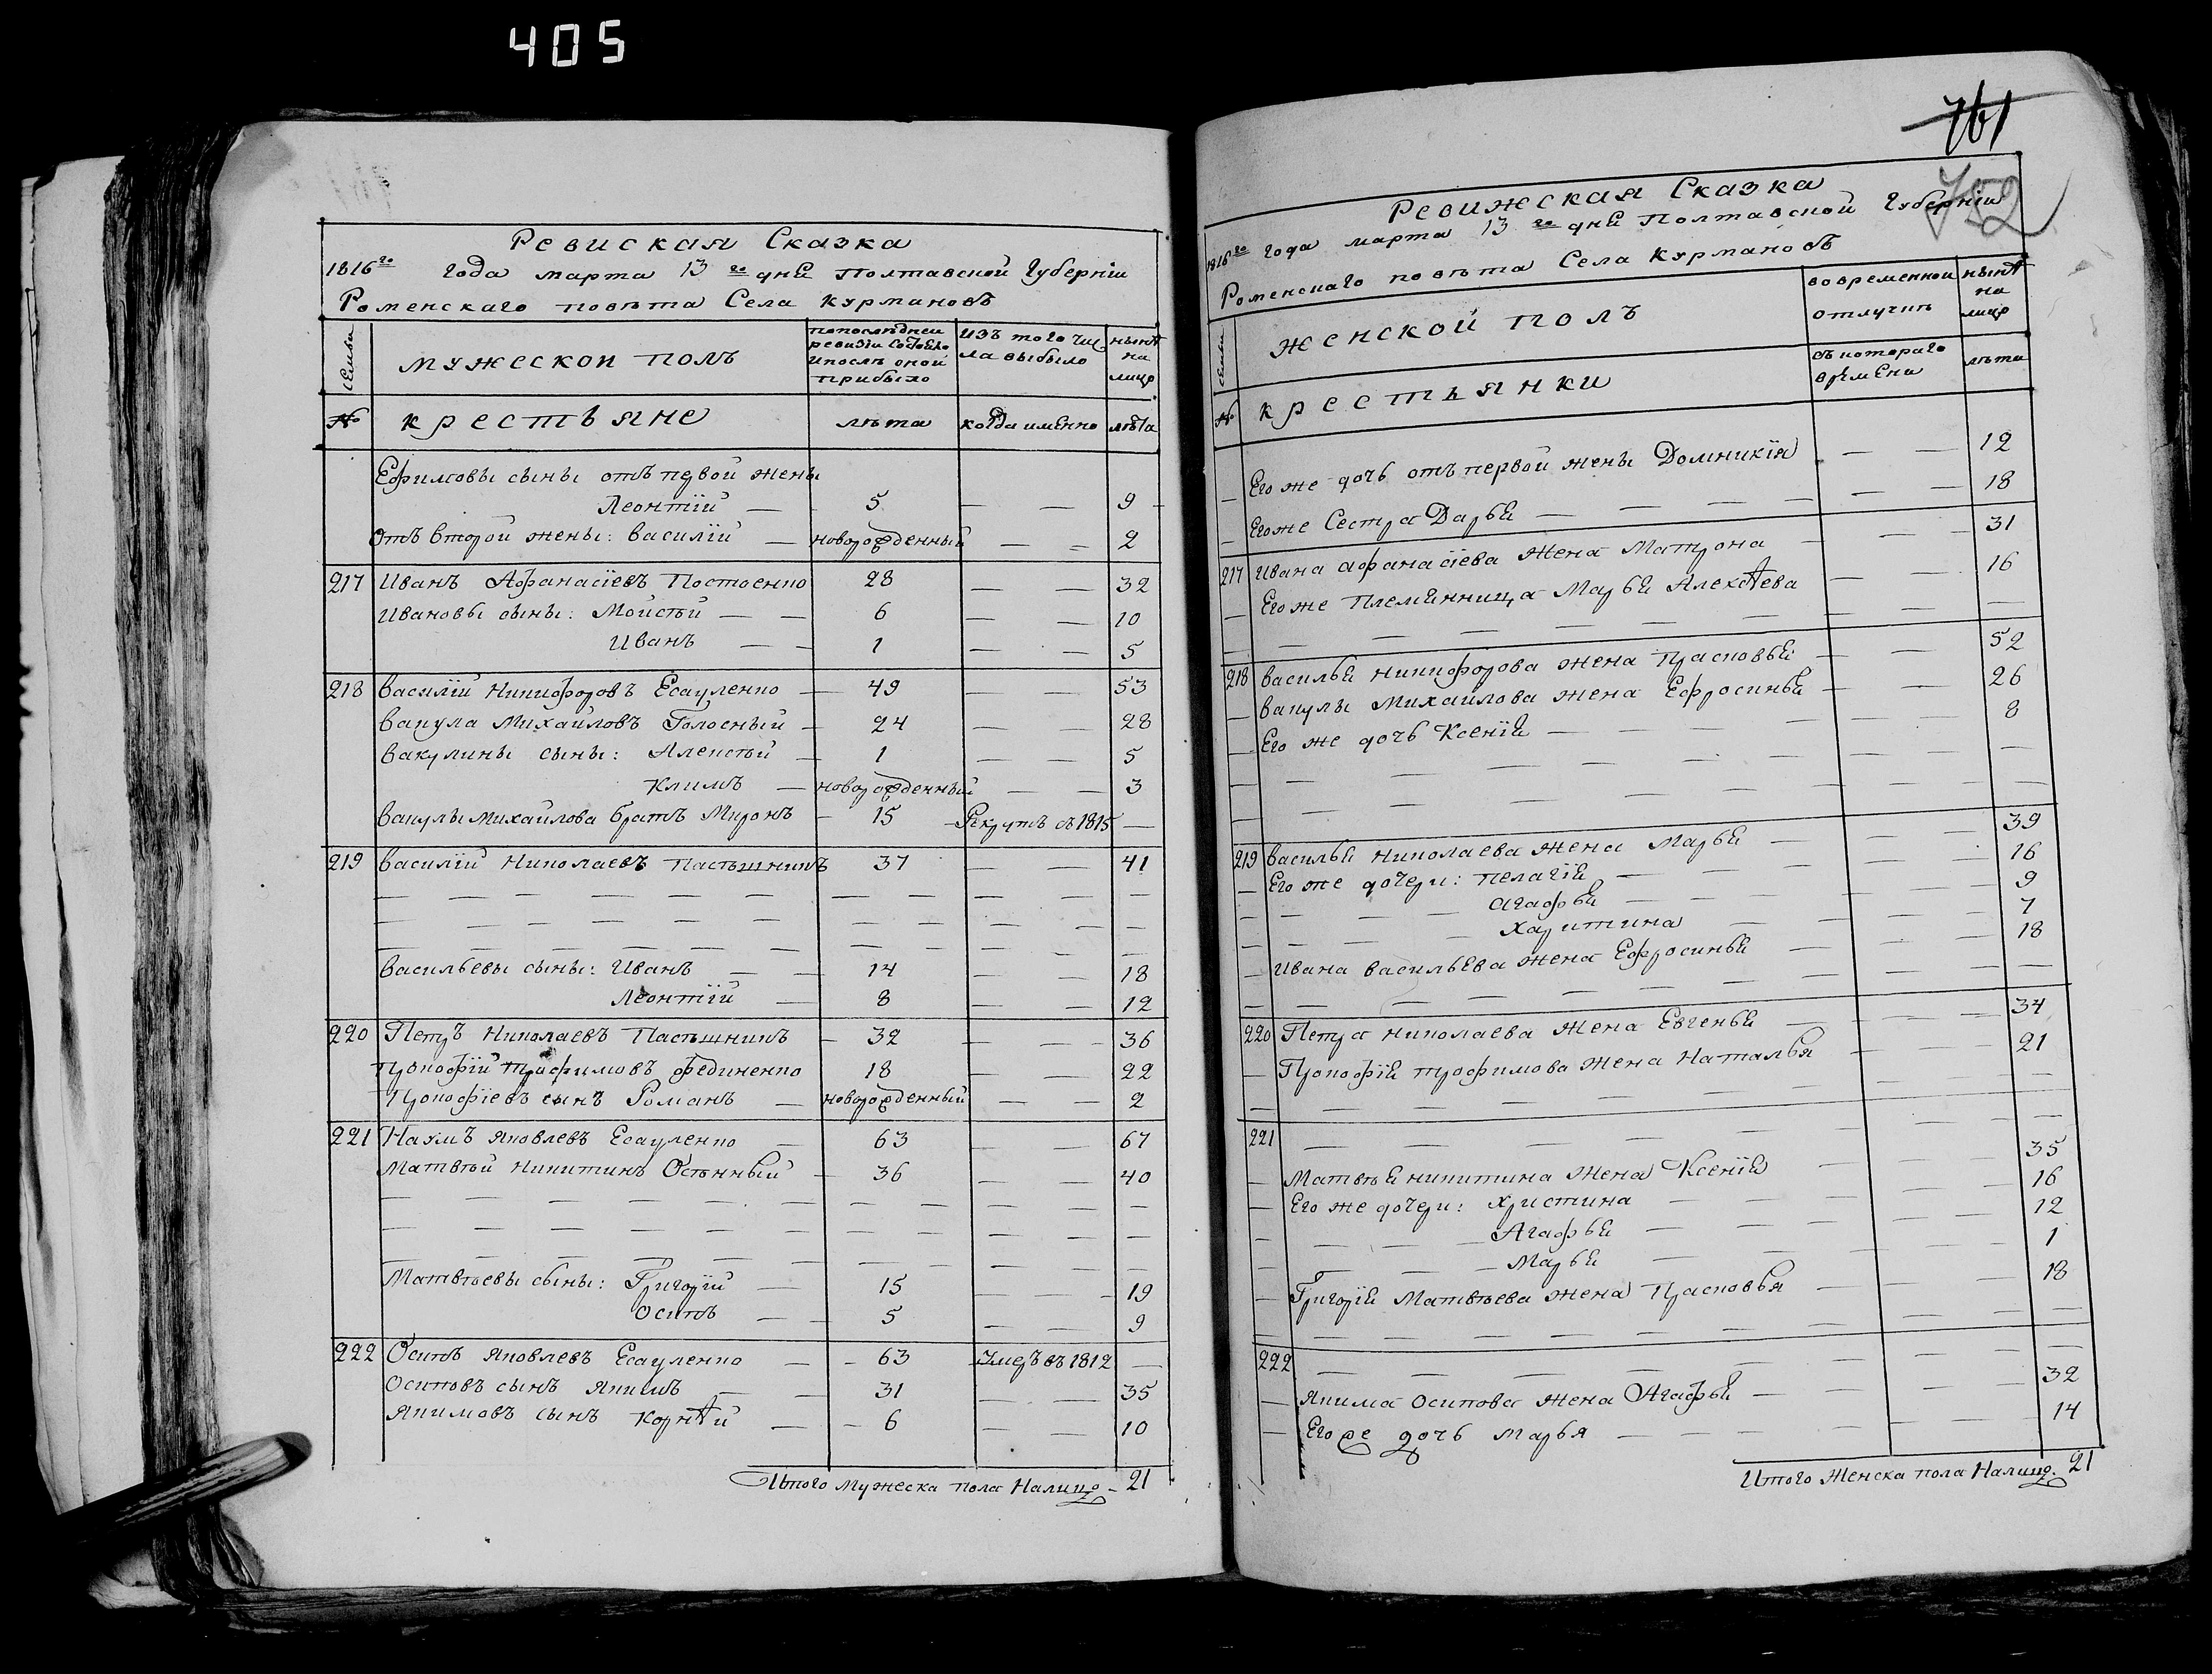 405
Ревиская Сказка
1816го года марта 13го дня Полтавской Губерніи
Роменскаго повѣта Села Курмановъ
семьи
мужескои полъ
попослѣднеи ревизіи состояло ипослѣ оной прибыло
изъ того числа выбыло
нынѣ на лицо
№
крестьяне
лѣта
когда именно
лѣта
Ефимовы сыны отъ первой жены
Леонтій — 5 — — 9
Отъ второй жены: василій — новорожденный — — 2
217 Иванъ Афанасіевъ Постоенко 28 — — 32
Ивановы сыны: Мойсѣй — — 6 — — 10
Иванъ — — 1 — — 5
218 василій Никифоровъ Есауленко — 49 — — 53
вакула Михайловъ Голосный — 24 — — 28
вакулины сыны: Алексѣй — 1 — — 5
Климъ — новорожденный — — 3
вакулы Михайлова братъ Миронъ — 15 — Рекрутъ съ 1815 —
219 василій Николаевъ Пастышникъ 37 — — 41
васильевы сыны: Иванъ — — 14 — — 18
Леонтій — 8 — — 12
220 Петръ Николаевъ Пастышникъ — 32 — — 36
Прокофій Трофимовъ Фединенко 18 — — 22
Прокофіевъ сынъ Романъ — новорожденный — — 2
221 Наумъ Яковлевъ Есауленко — 63 — — 67
Матвѣй Никитинъ Осѣнный — 36 — — 40
Матвѣевы сыны: Григорій — 15 — — 19
Осипъ — — 5 — — 9
222 Осипъ Яковлевъ Есауленко — — 63 — Умеръ въ 1812 —
Осиповъ сынъ Якимъ — — 31 — — 35
Якимовъ сынъ Корнѣй — — 6 — — 10
Итого мужеска пола Налицо — 21
761
752
Ревижская Сказка
1816го года марта 13го дня Полтавской Губерніи
Роменскаго повѣта Села Курмановъ
семьи
женской полъ
вовременной отлучкѣ
нынѣ на лицо
№
крестьянки
съ котораго времени
лѣта
— Его же дочь отъ первой жены Домникія — — 12
— Его же Сестра Дарья — — — — — 18
217 Ивана Афанасіева жена Матрона — — — 31
— Его же Племянница Марья Алексѣева — — 16
218 василья Никифорова жена Прасковья — — — 52
— вакулы Михайлова жена Ефросинья — — — 26
— Его же дочь Ксенія — — — 8
219 василья Николаева жена Марья — — — 39
— Его же дочери: Пелагія — — — 16
Агафья — — — 9
Харитина — — — 7
— Ивана васильева жена Ефросинья — — — 18
220 Петра Николаева жена Евгенья — — — 34
— Прокофія Трофимова жена Наталья — — 21
221
— Матвѣя никитина жена Ксенія — — — 35
— Его же дочери: Христина — — — 16
Агафья — — — 12
Марья — — — 1
— Григорія Матвѣева жена Прасковья — — — 18
222
— Якима Осипова жена Агафья — — — 32
— Его же дочь Марья — — — 14
Итого Женска пола Налицо. 21